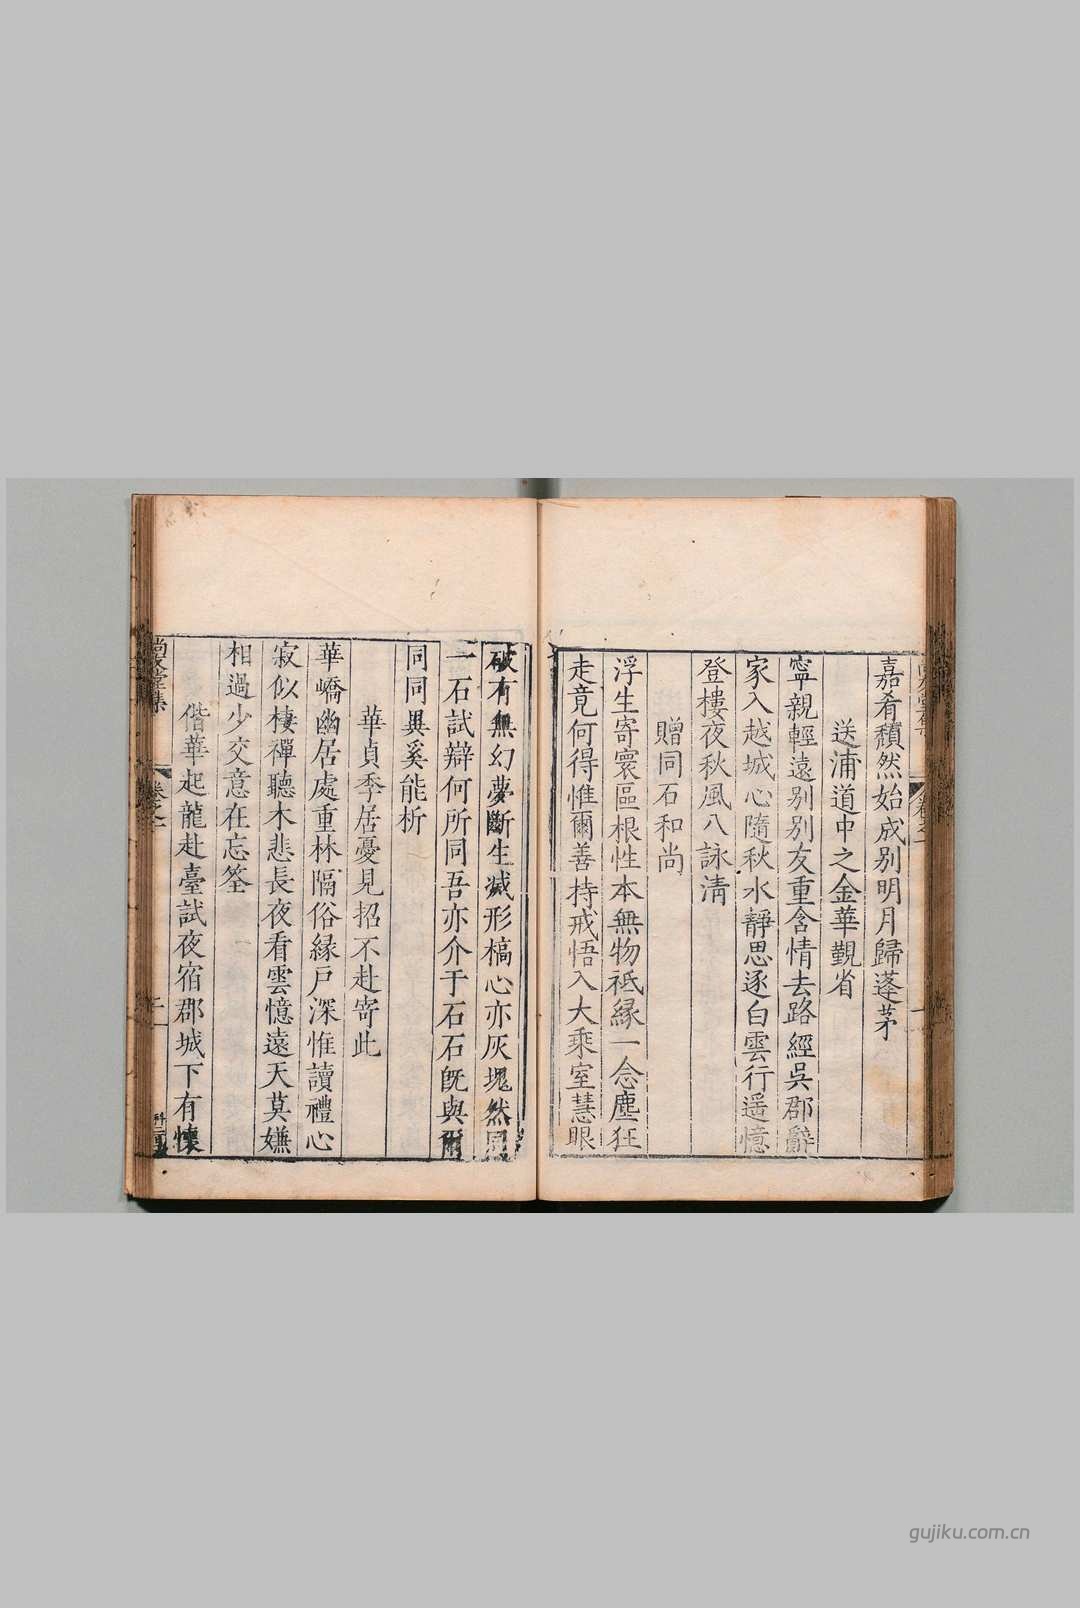 嘉肴穨然始成別明月歸蓬茅
送浦道中之金華觀省
寧親輕遠別別友重含情去路經吳郡辭
家入越城心隨秋水靜思逐白雲行遥憶
登樓夜秋風八詠清
贈同石和尚
浮生寄寰區根性本無物祗緣一念塵狂
走竟何得惟爾善持戒悟入大乘室慧眼
破有無幻夢斷生滅形槁心亦灰塊然同
一石試辯何所同吾亦介于石石旣與爾
同同異奚能析
華貞季居憂見招不赴寄此
華嶠幽居處重林隔俗緣戸深惟讀禮心
寂似棲禪聽木悲長夜看雲憶遠天莫嫌
相過少交意在忘筌
偕華起龍赴臺試夜宿郡城下有懷
卷之一
gujiku.com.cn